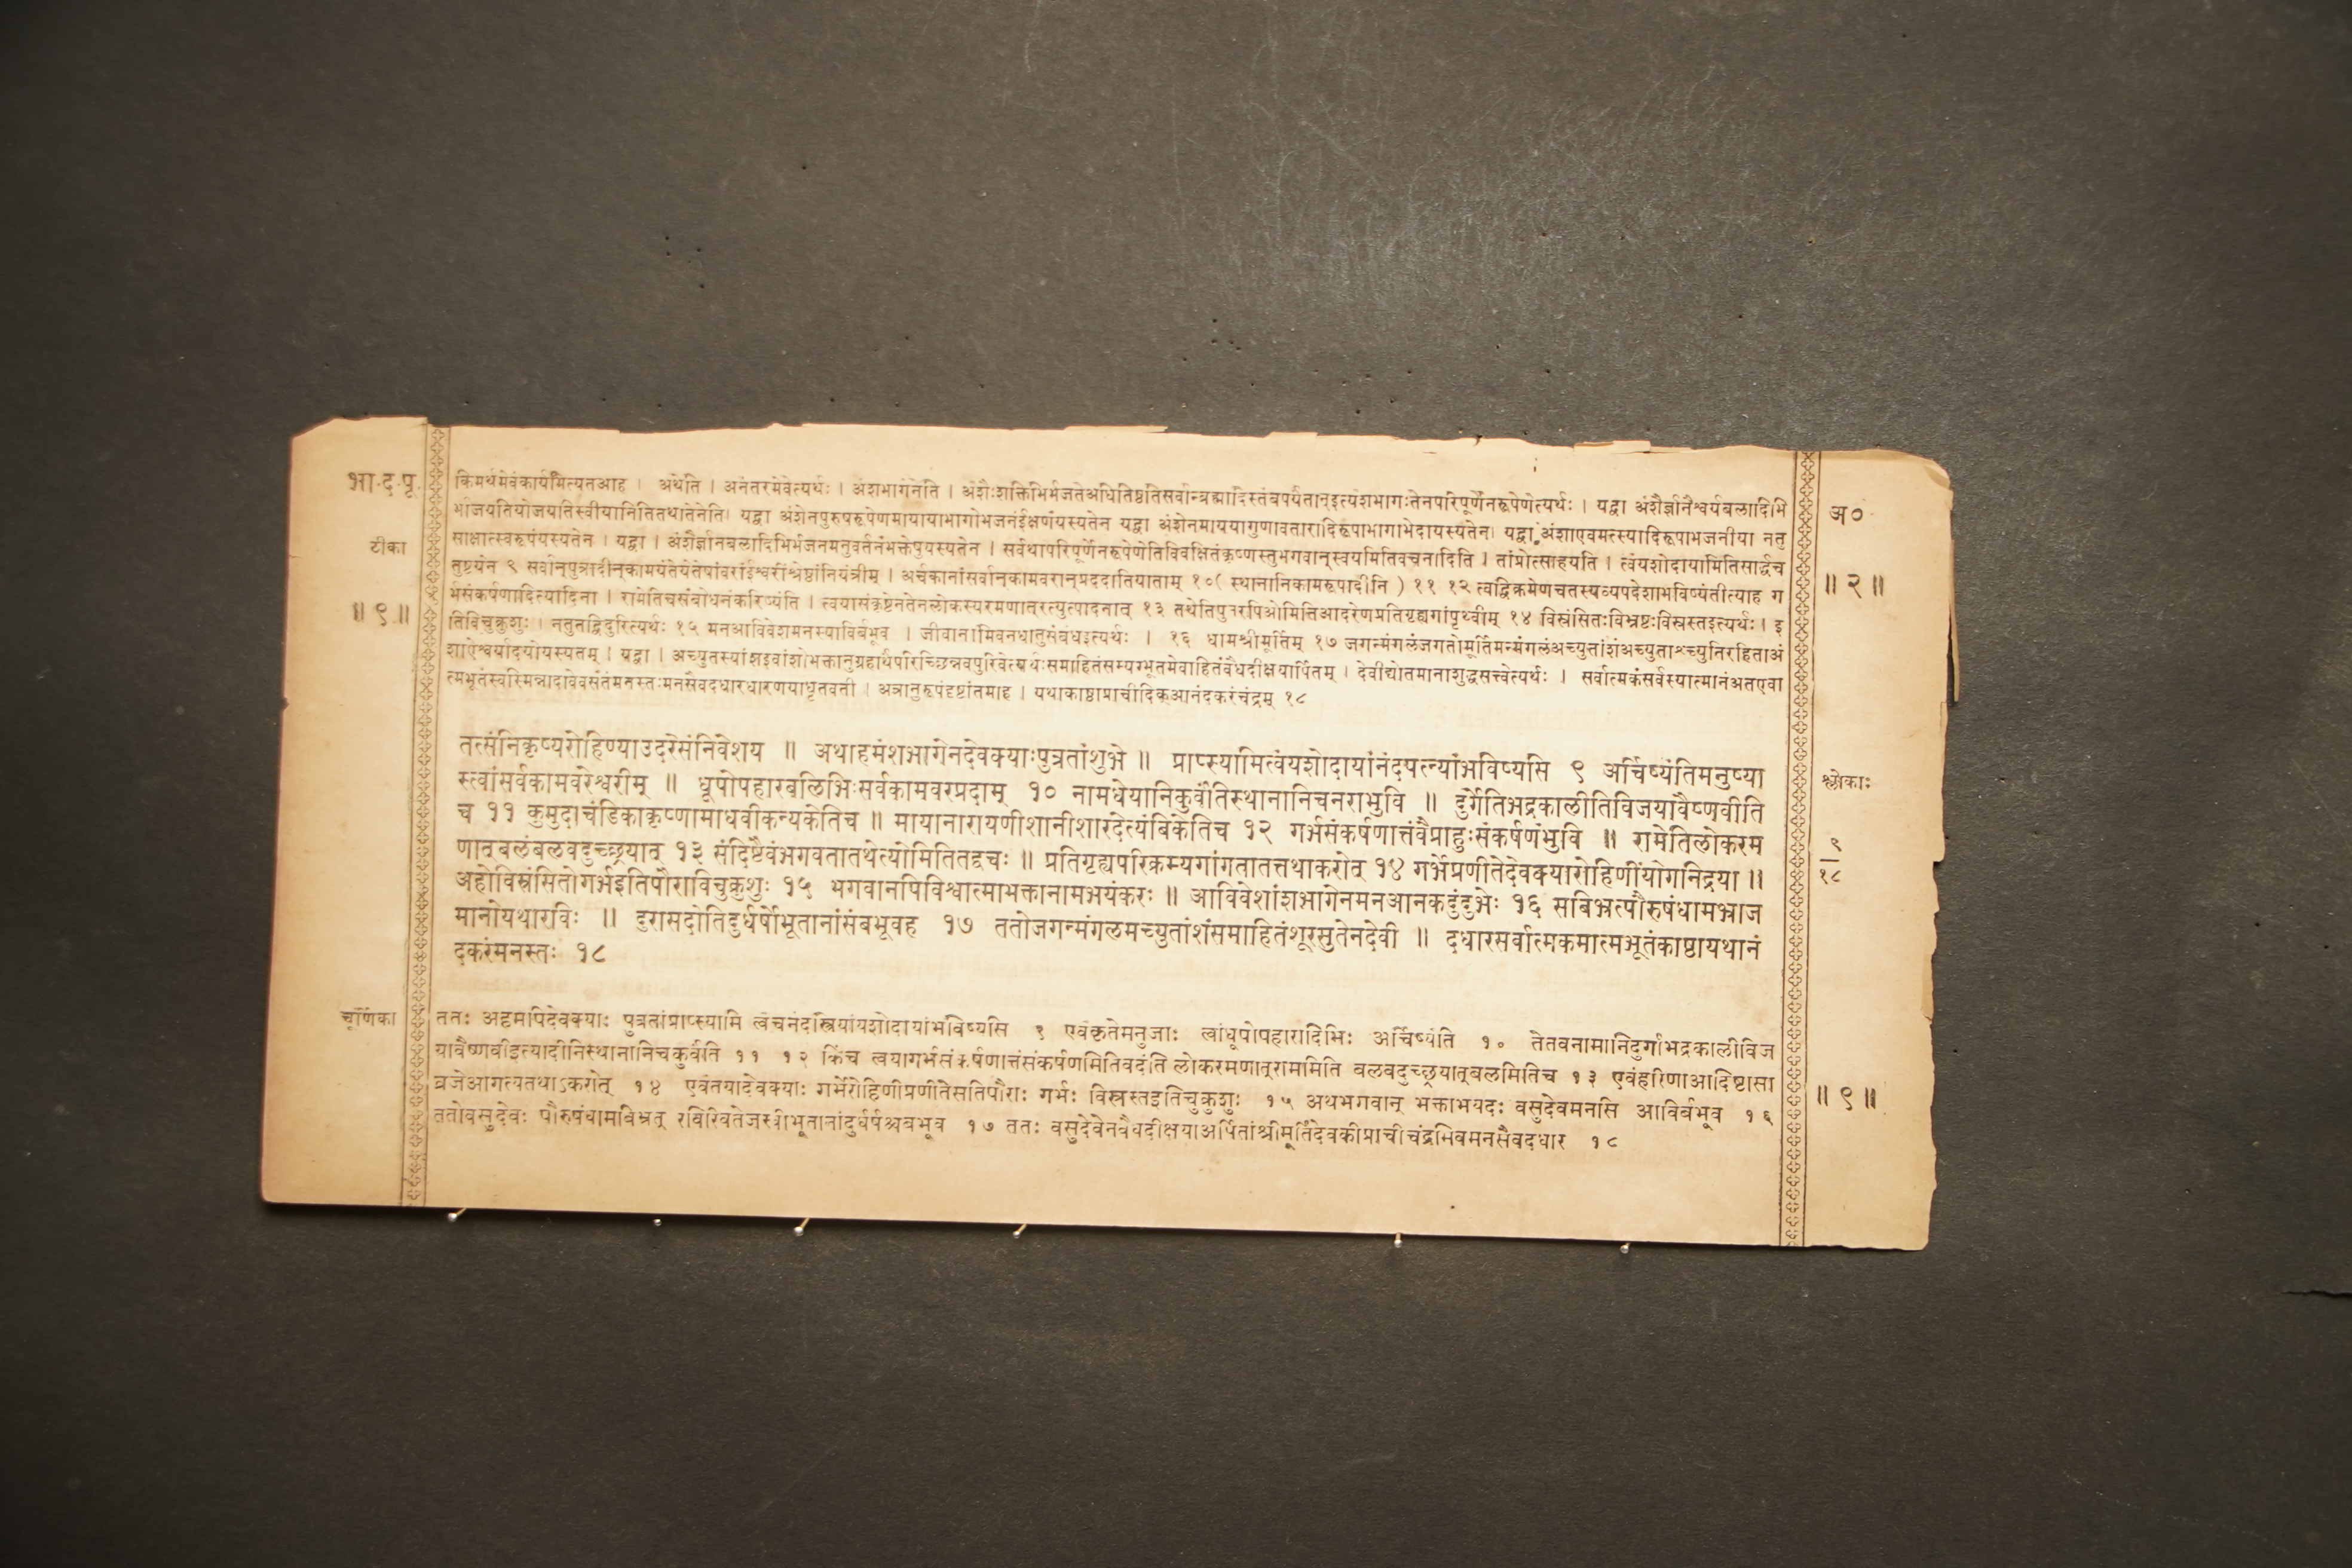 भा.द.पू.
टीका
॥ ९ ॥
किमर्थमेवंकार्यमित्यतआह । अथेति । अनंतरमेवेत्यर्थः । अंशभागेनेति । अंशैःशक्तिभिर्भजतेअधितिष्ठतिसर्वान्ब्रह्मादिस्तंबपर्यंतान्इत्यंशभागःतेनपरिपूर्णेनरूपेणेत्यर्थः । यद्वा अंशैर्ज्ञानैश्वर्यबलादिभि
र्भाजयतियोजयतिस्वीयानितितथातेनेति। यद्वा अंशेनपुरुषरूपेणमायायाभागोभजनंईक्षणंयस्यतेन यद्वा अंशेनमाययागुणावतारादिरूपाभागाभेदायस्यतेन। यद्वा अंशाएवमत्स्यादिरूपाभजनीया नतु
साक्षात्स्वरूपंयस्यतेन । यद्वा । अंशैर्ज्ञानबलादिभिर्भजनमनुवर्तनंभक्तेषुयस्यतेन । सर्वथापरिपूर्णेनरूपेणेतिविवक्षितंकृष्णस्तुभगवान्स्वयमितिवचनादिति । तांप्रोत्साहयति । त्वंयशोदायामितिसार्द्धच
तुष्टयेन ९ सर्वान्पुत्रादीन्कामयंतेयेतेषांवरांईश्वरींश्रेष्ठांनियंत्रीम् । अर्चकानांसर्वान्कामवरान्प्रददातियाताम् १०( स्थानानिकामरूपादीनि ) ११ १२ त्वद्विक्रमेणचतस्यव्यपदेशाभविष्यंतीत्याह ग
र्भसंकर्षणादित्यादिना । रामेतिचसंबोधनंकरिष्यंति । त्वयासंकृष्टेनतेनलोकस्यरमणात्रत्युत्पादनात् १३ तथेतिपुनरपिओमितिआदरेणप्रतिगृह्यगांपृथ्वीम् १४ विस्रंसितःविभ्रष्टःविस्रस्तइत्यर्थः । इ
तिविचुक्रुशुः । नतुतद्विदुरित्यर्थः १५ मनआविवेशमनस्याविर्बभूव । जीवानामिवनधातुसंबंधइत्यर्थः । १६ धामश्रीमूर्तिम् १७ जगन्मंगलंजगतोमूर्तिमन्मंगलंअच्युतांशंअच्युताश्च्युतिरहिताअं
शाऐश्वर्यादयोयस्यतम् । यद्वा । अच्युतस्यांशइवांशोभक्तानुग्रहार्थंपरिच्छिन्नवपुरिवेत्यर्थःसमाहितंसम्यग्भूतमेवाहितंवैधदीक्षयार्पितम् । देवीद्योतमानाशुद्धसत्त्वेत्यर्थः । सर्वात्मकंसर्वस्यात्मानंअतएवा
त्मभूतंस्वस्मिन्नादावेवसंतंमनस्तःमनसैवदधारधारणयाधृतवती । अत्रानुरूपंदृष्टांतमाह । यथाकाष्ठाप्राचीदिक्आनंदकरंचंद्रम् १८
तत्संनिकृष्यरोहिण्याउदरेसंनिवेशय ॥ अथाहमंशभागेनदेवक्याःपुत्रतांशुभे ॥ प्राप्स्यामित्वंयशोदायांनंदपत्न्यांभविष्यसि ९ अर्चिष्यंतिमनुष्या
स्त्वांसर्वकामवरेश्वरीम् ॥ धूपोपहारबलिभिःसर्वकामवरप्रदाम् १० नामधेयानिकुर्वंतिस्थानानिचनराभुवि ॥ दुर्गेतिभद्रकालीतिविजयावैष्णवीति
च ११ कुमुदाचंडिकाकृष्णामाधवीकन्यकेतिच ॥ मायानारायणीशानीशारदेत्यंबिकेतिच १२ गर्भसंकर्षणात्तंवैप्राहुःसंकर्षणंभुवि ॥ रामेतिलोकरम
णात्बलंबलवदुच्छ्रयात् १३ संदिष्टैवंभगवतातथेत्योमितितद्वचः ॥ प्रतिगृह्यपरिक्रम्यगांगतातत्तथाकरोत् १४ गर्भेप्रणीतेदेवक्यारोहिणींयोगनिद्रया ॥
अहोविस्रंसितोगर्भइतिपौराविचुक्रुशुः १५ भगवानपिविश्वात्माभक्तानामभयंकरः ॥ आविवेशांशभागेनमनआनकदुंदुभेः १६ सबिभ्रत्पौरुषंधामभ्राज
मानोयथारविः ॥ दुरासदोतिदुर्धर्षोभूतानांसंबभूवह १७ ततोजगन्मंगलमच्युतांशंसमाहितंशूरसुतेनदेवी ॥ दधारसर्वात्मकमात्मभूतंकाष्ठायथानं
दकरंमनस्तः १८
चूर्णिका
ततः अहमपिदेवक्याः पुत्रतांप्राप्स्यामि त्वंचनंदस्त्रियांयशोदायांभविष्यसि ९ एवंकृतेमनुजाः त्वांधूपोपहारादिभिः अर्चिष्यंति १० तेतवनामानिदुर्गाभद्रकालीविज
यावैष्णवीइत्यादीनिस्थानानिचकुर्वंति ११ १२ किंच त्वयागर्भसंकर्षणात्तंसंकर्षणमितिवदंति लोकरमणात्राममिति बलवदुच्छ्रयात्बलमितिच १३ एवंहरिणाआदिष्टासा
व्रजेआगत्यतथाऽकरोत् १४ एवंतयादेवक्याः गर्भेरोहिणींप्रणीतेसतिपौराः गर्भः विस्रस्तइतिचुक्रुशुः १५ अथभगवान् भक्ताभयदः वसुदेवमनसि आविर्बभूव १६
ततोवसुदेवः पौरुषंधामबिभ्रत् रविरिवतेजस्वीभूतानांदुर्धर्षश्चबभूव १७ ततः वसुदेवेनवैधदीक्षयाअर्पितांश्रीमूर्तिंदेवकीप्राचीचंद्रमिवमनसैवदधार १८
अ०
॥ २ ॥
श्लोकाः
९
१८
॥ ९ ॥